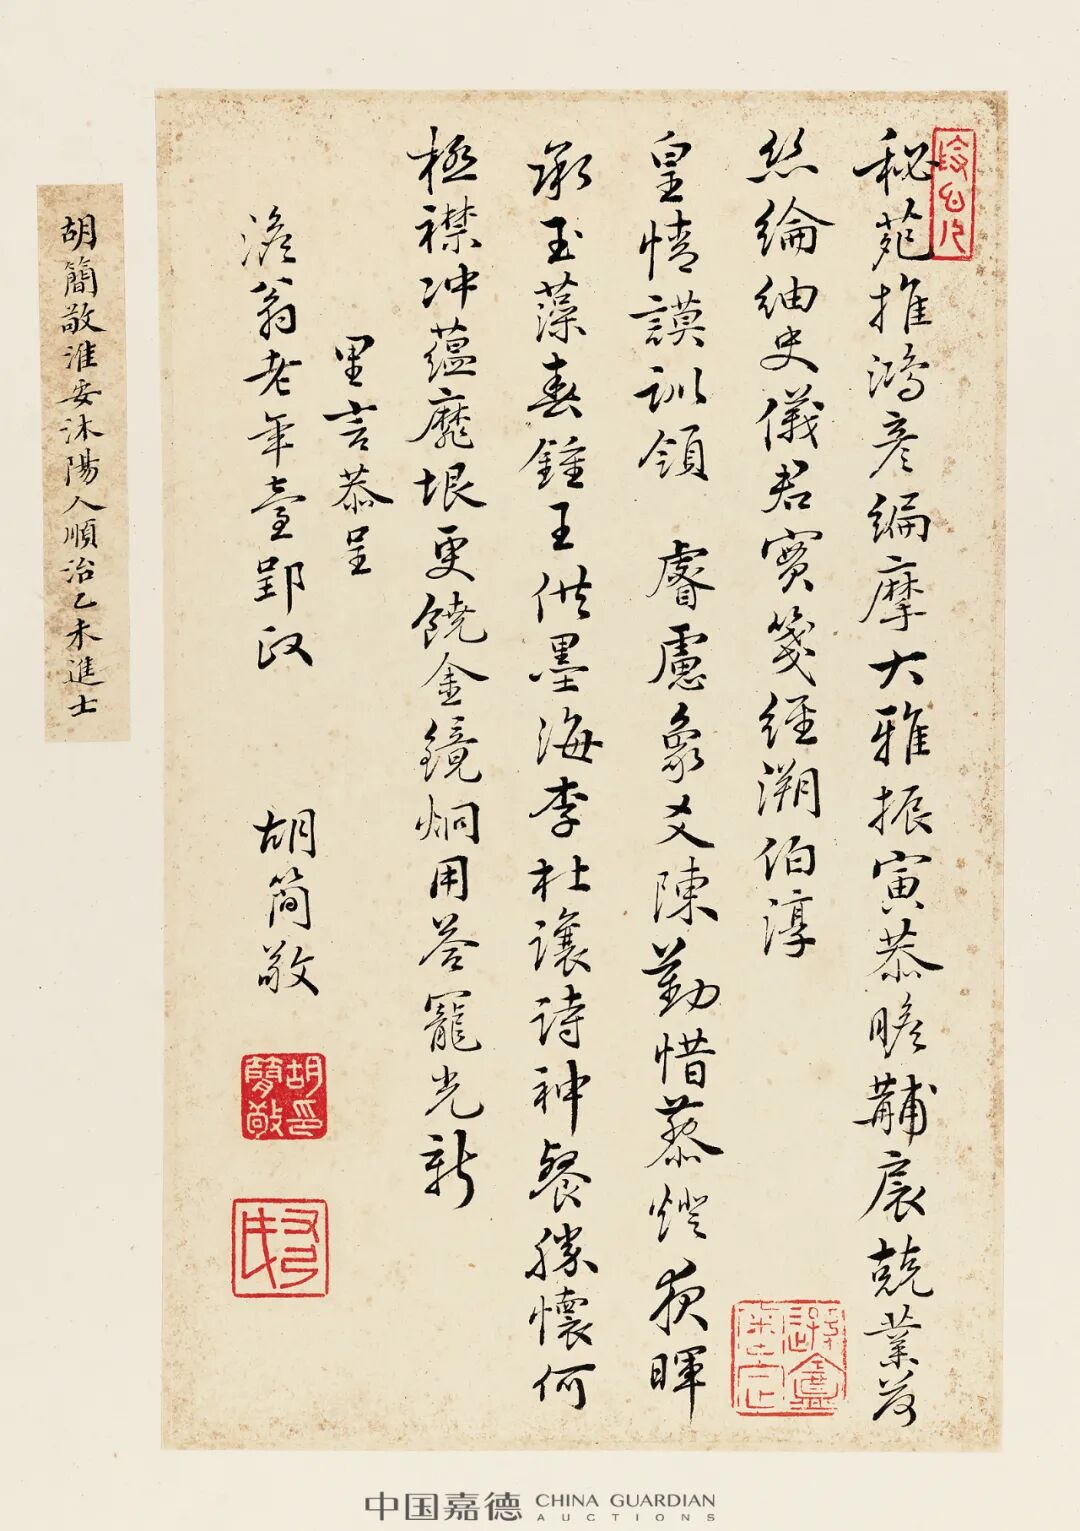 秘苑推鴻彥編摩大雅振寅恭瞻黼扆兢業荷
絲綸紬史儀君實箋經溯伯淳
皇情謨訓領 睿慮象爻陳勤惜藜燈夜暉
承玉藻春鍾王供墨海李杜讓詩神餐勝懷何
極襟沖蘊靡垠更饒金鏡炯用荅寵光新
里言恭呈
澹翁老年臺郢政
胡簡敬
胡簡敬印
胡簡敬淮安沐陽人順治乙未進士
中国嘉德 CHINA GUARDIAN
AUCTIONS